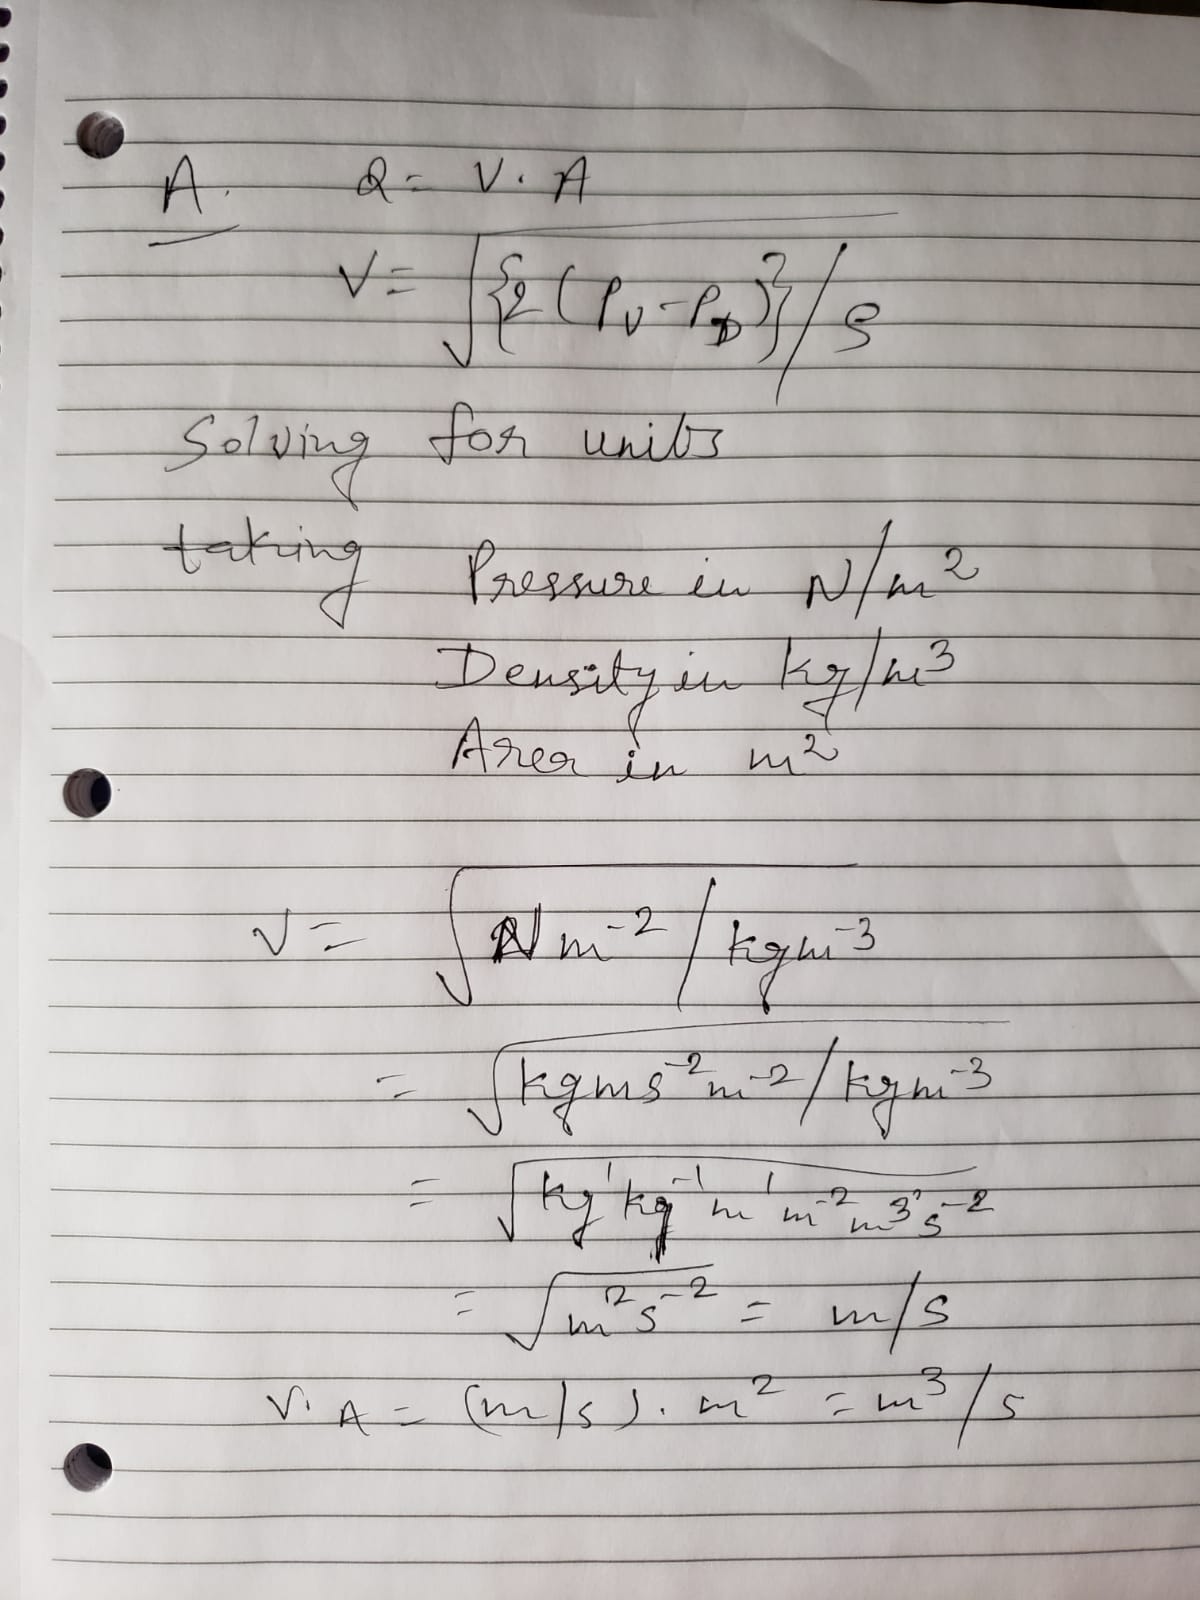 A. Q = V. A
V = √{2(Pᵥ-P_D)}/ρ
Solving for units
taking Pressure in N/m²
Density in kg/m³
Area in m²
V = √Nm⁻²/kgm⁻³
= √kgms⁻²m⁻²/kgm⁻³
= √kg¹kg⁻¹m¹m⁻²m³s⁻²
= √m²s⁻² = m/s
V. A = (m/s). m² = m³/s